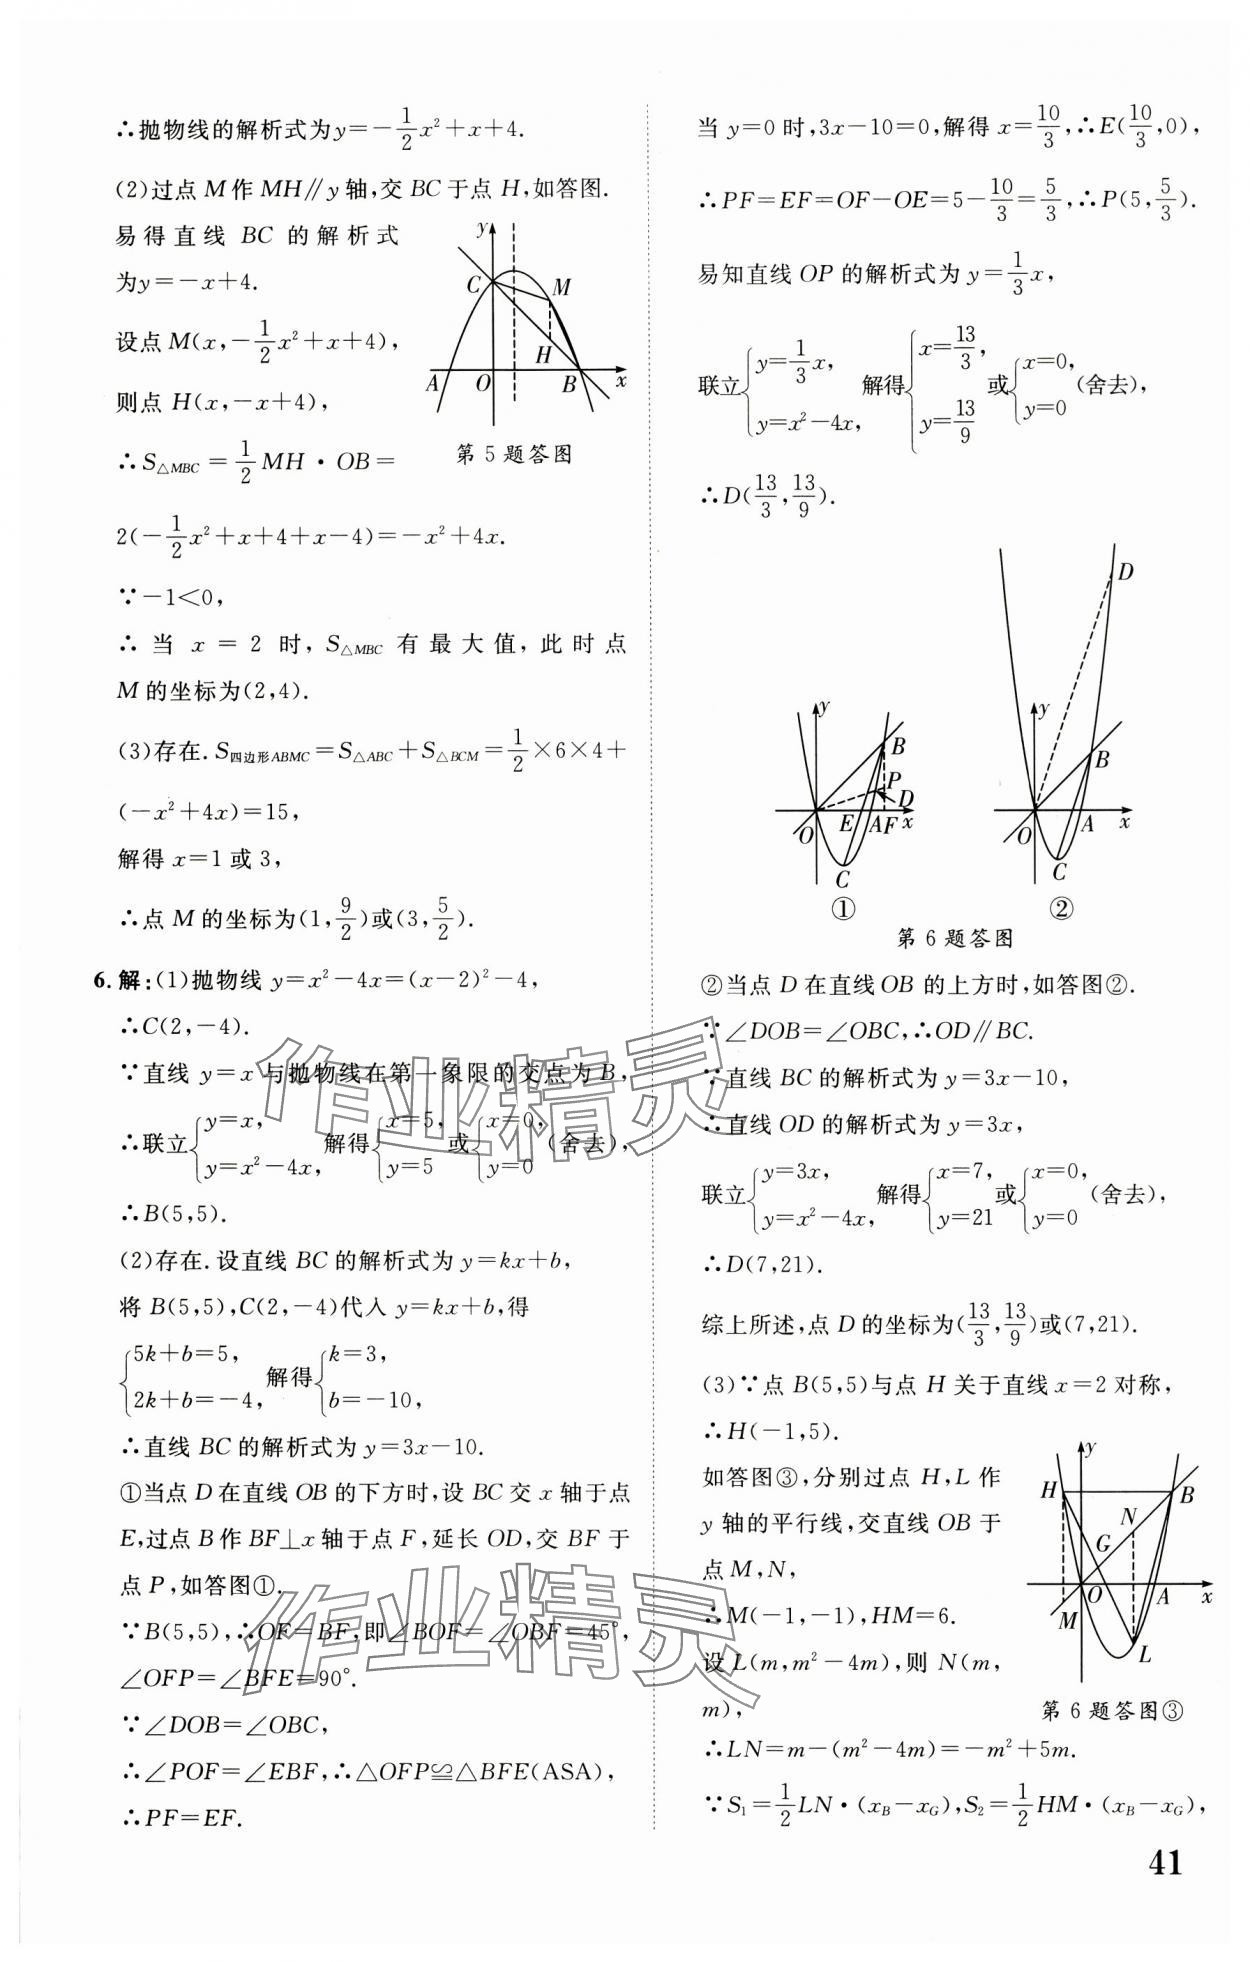 ∴抛物线的解析式为y=-1/2x²+x+4.
(2)过点M作MH∥y轴,交BC于点H,如答图.
易得直线BC的解析式
为y=-x+4.
设点M(x,-1/2x²+x+4),
则点H(x,-x+4),
∴S△MBC=1/2MH·OB=
y
C
M
H
A
O
B
x
第5题答图
2(-1/2x²+x+4+x-4)=-x²+4x.
∵-1<0,
∴当x=2时,S△MBC有最大值,此时点
M的坐标为(2,4).
(3)存在.S四边形ABMC=S△ABC+S△BCM=1/2×6×4+
(-x²+4x)=15,
解得x=1或3,
∴点M的坐标为(1,9/2)或(3,5/2).
6.解:(1)抛物线y=x²-4x=(x-2)²-4,
∴C(2,-4).
∵直线y=x与抛物线在第一象限的交点为B,
∴联立{y=x, y=x²-4x, 解得{x=5, y=5 或{x=0, y=0 (舍去),
∴B(5,5).
(2)存在.设直线BC的解析式为y=kx+b,
将B(5,5),C(2,-4)代入y=kx+b,得
{5k+b=5, 2k+b=-4, 解得{k=3, b=-10,
∴直线BC的解析式为y=3x-10.
①当点D在直线OB的下方时,设BC交x轴于点
E,过点B作BF⊥x轴于点F,延长OD,交BF于
点P,如答图①.
∵B(5,5),∴OF=BF,即∠BOF=∠OBF=45°,
∠OFP=∠BFE=90°.
∵∠DOB=∠OBC,
∴∠POF=∠EBF,∴△OFP≌△BFE(ASA),
∴PF=EF.
当y=0时,3x-10=0,解得x=10/3,∴E(10/3,0),
∴PF=EF=OF-OE=5-10/3=5/3,∴P(5,5/3).
易知直线OP的解析式为y=1/3x,
联立{y=1/3x, y=x²-4x, 解得{x=13/3, y=13/9 或{x=0, y=0 (舍去),
∴D(13/3,13/9).
y
B
P
D
O
E
A
F
x
C
①
y
D
B
O
A
x
C
②
第6题答图
②当点D在直线OB的上方时,如答图②.
∵∠DOB=∠OBC,∴OD∥BC.
∵直线BC的解析式为y=3x-10,
∴直线OD的解析式为y=3x,
联立{y=3x, y=x²-4x, 解得{x=7, y=21 或{x=0, y=0 (舍去),
∴D(7,21).
综上所述,点D的坐标为(13/3,13/9)或(7,21).
(3)∵点B(5,5)与点H关于直线x=2对称,
∴H(-1,5).
如答图③,分别过点H,L作
y轴的平行线,交直线OB于
点M,N,
∴M(-1,-1),HM=6.
设L(m,m²-4m),则N(m,
m),
y
H
B
N
G
O
A
x
M
L
第6题答图③
∴LN=m-(m²-4m)=-m²+5m.
∵S₁=1/2LN·(xB-xG),S₂=1/2HM·(xB-xG),
41
作业精灵
作业精灵